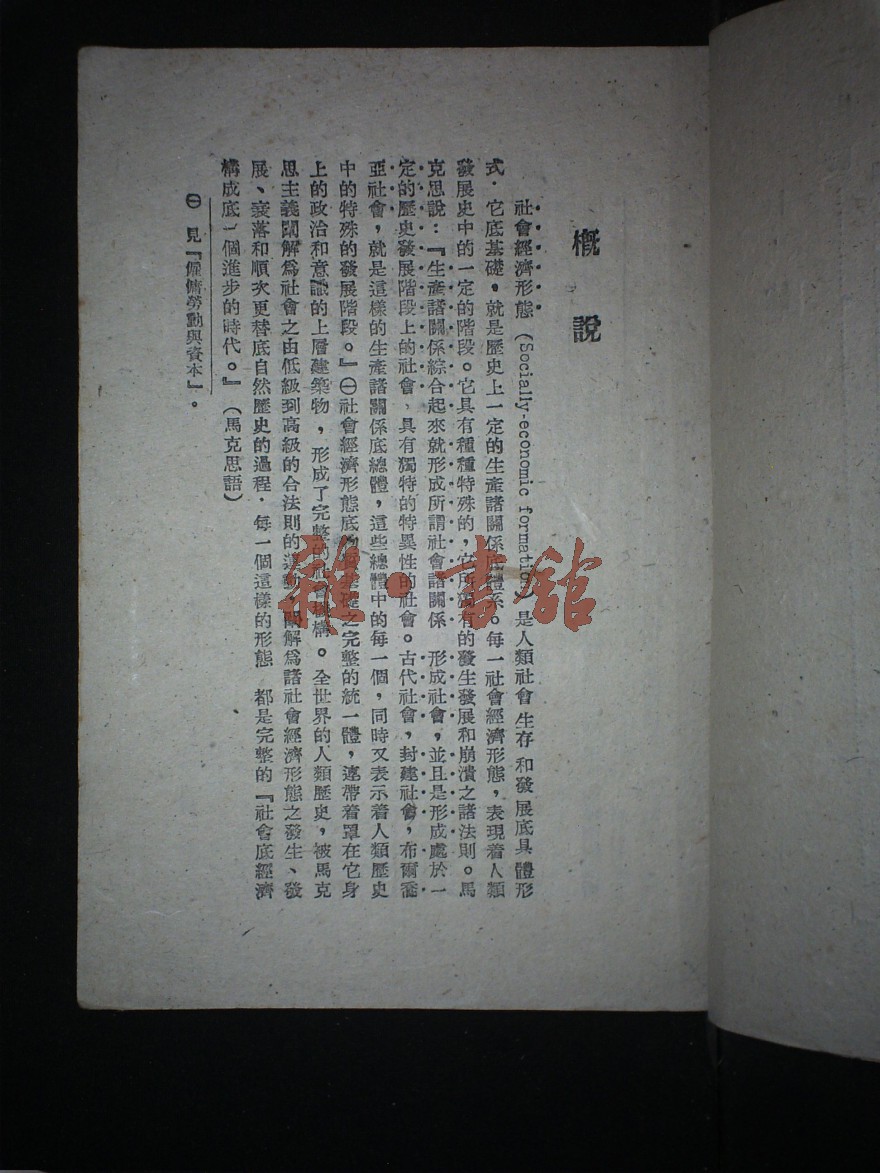 概說
社會經濟形態 (Socially-economic formation) 是人類社會生存和發展底具體形
式．它底基礎，就是歷史上一定的生產諸關係底體系。每一社會經濟形態，表現着人類
發展史中的一定的階段。它具有種種特殊的，它所獨有的發生發展和崩潰之諸法則。馬
克思說：『生產諸關係綜合起來就形成所謂社會諸關係 形成社會，並且是形成處於一
定的歷史發展階段上的社會，具有獨特的特異性的社會。古代社會，封建社會，布爾喬
亞社會，就是這樣的生產諸關係底總體，這些總體中的每一個，同時又表示着人類歷史
中的特殊的發展階段。』㊀社會經濟形態底基礎之完整的統一體，連帶着罩在它身
上的政治和意識的上層建築物，形成了完整的社會機構。全世界的人類歷史，被馬克
思主義闡解爲社會之由低級到高級的合法則的運動，闡解爲諸社會經濟形態之發生、發
展、衰落和順次更替底自然歷史的過程．每一個這樣的形態 都是完整的『社會底經濟
構成底一個進步的時代。』（馬克思語）
㊀ 見『僱傭勞動與資本』。
雜·書館